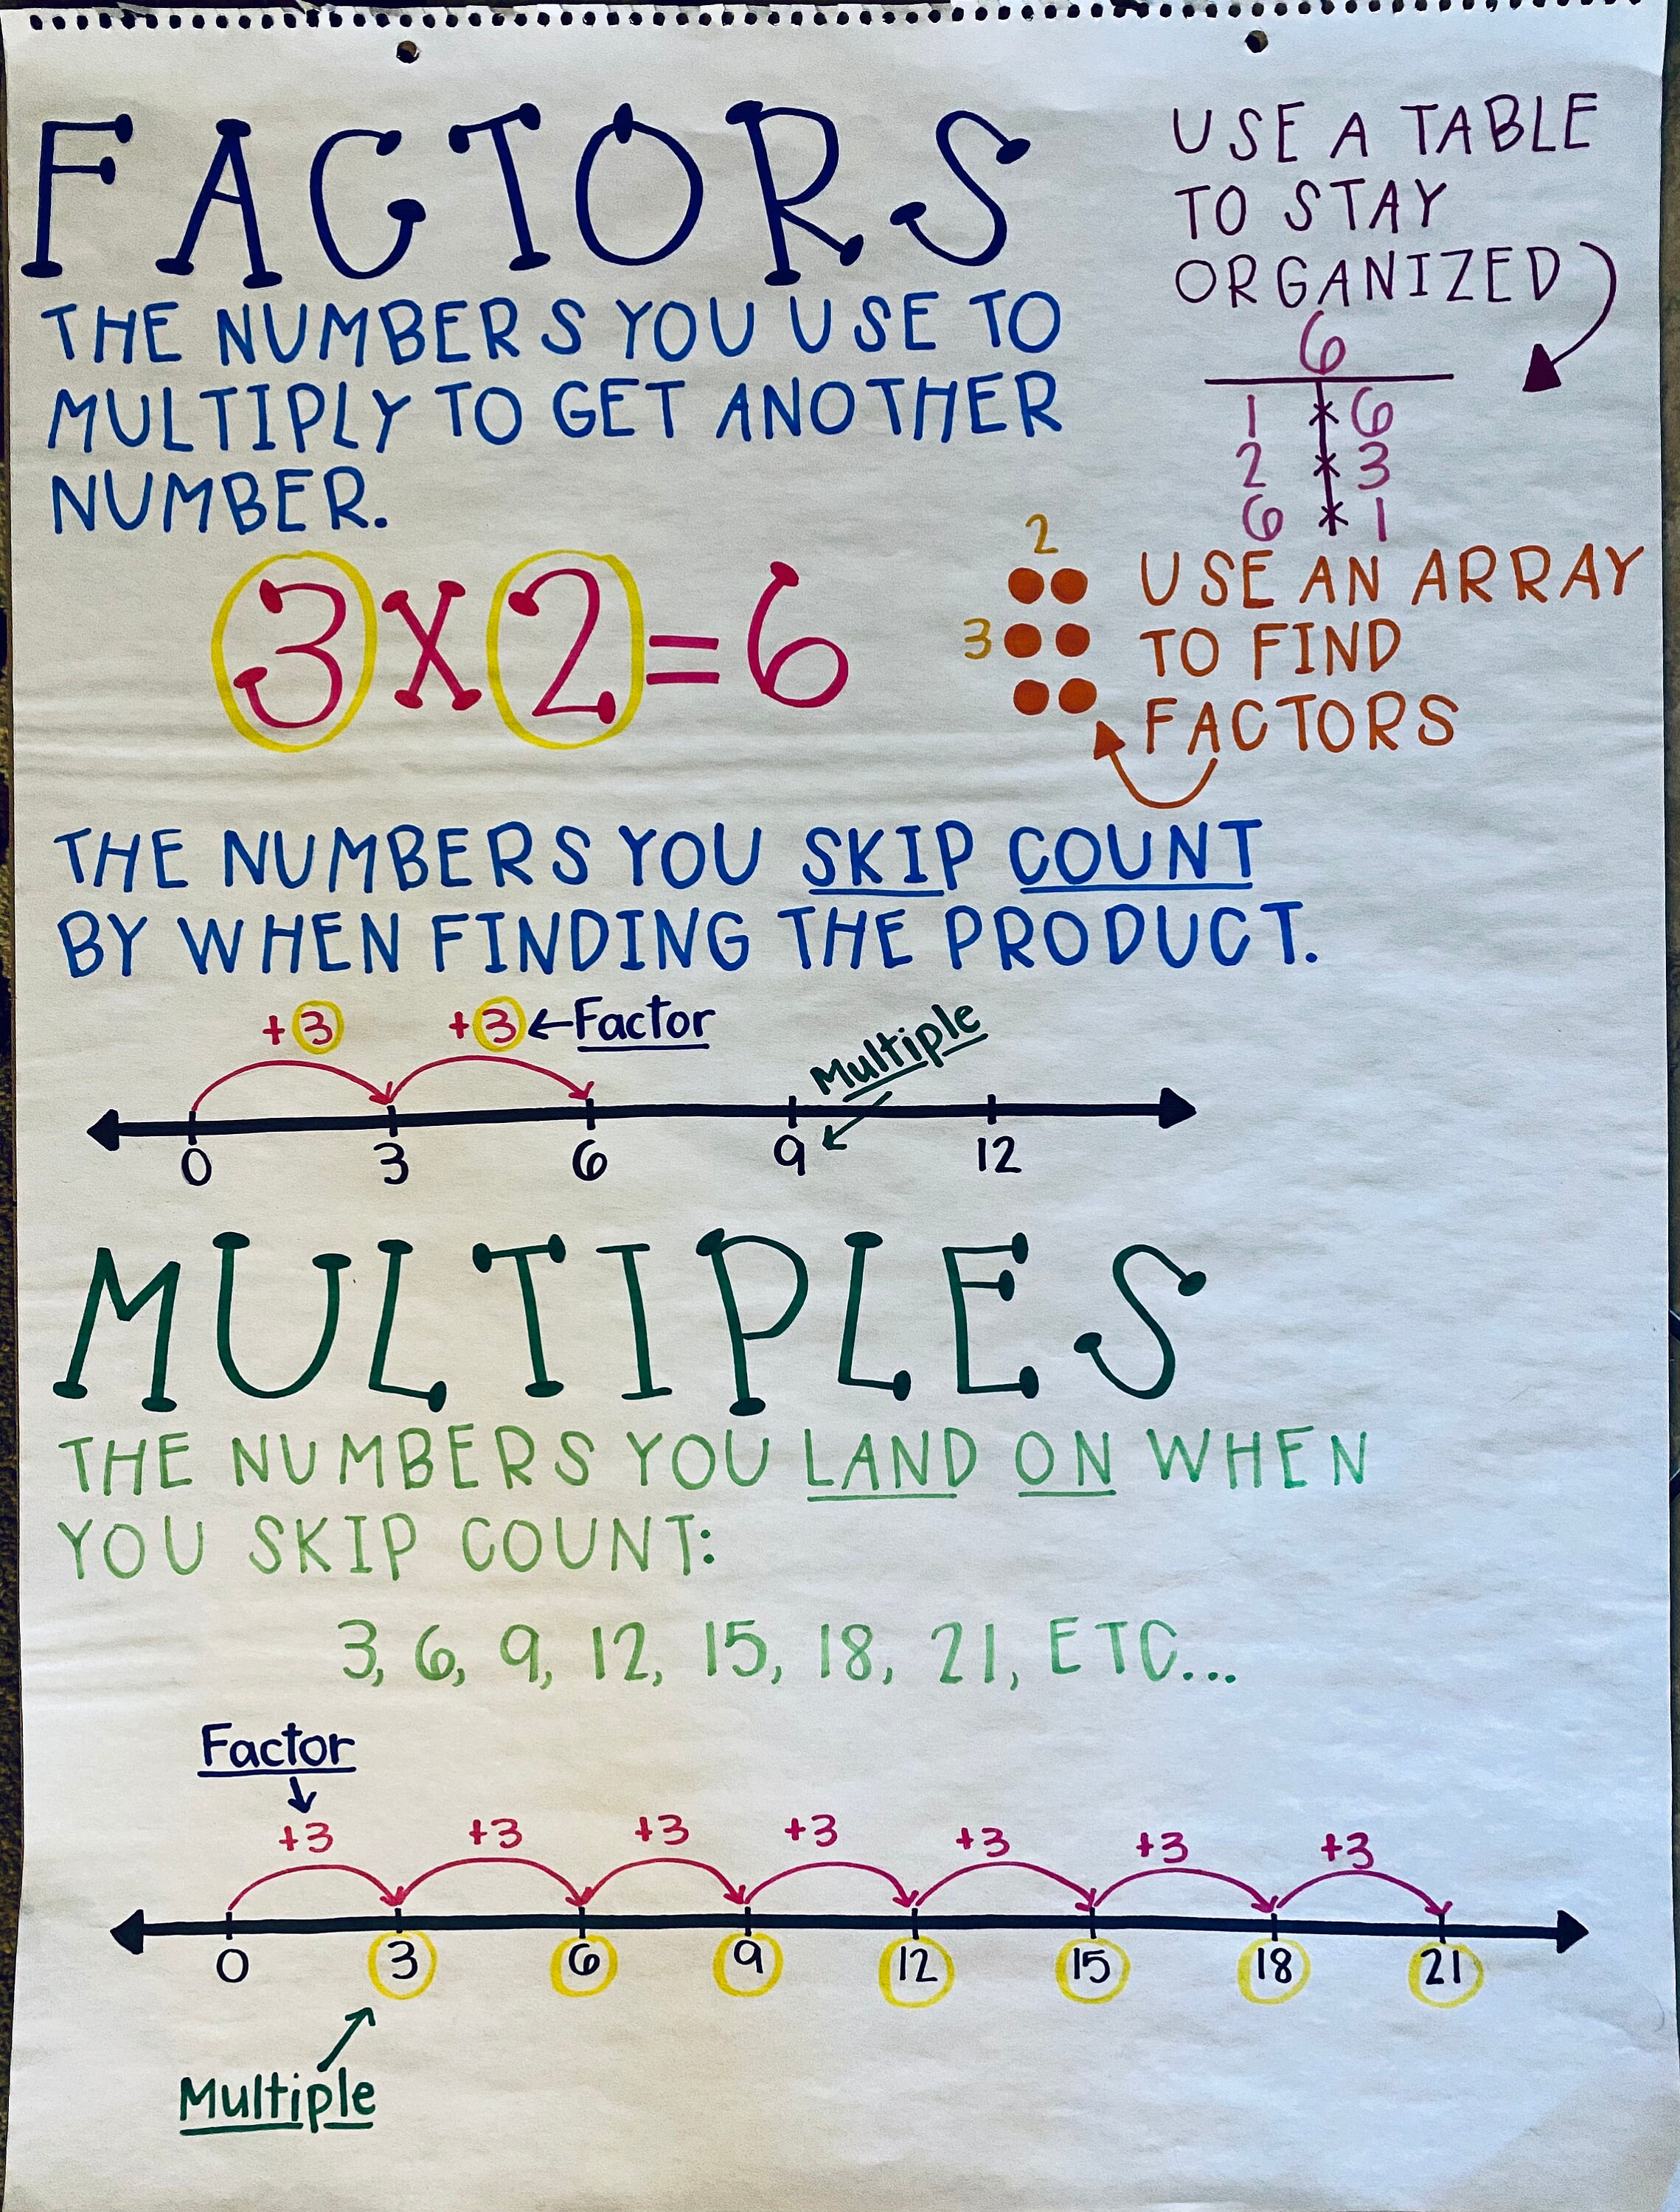 FACTORS
THE NUMBERS YOU USE TO
MULTIPLY TO GET ANOTHER
NUMBER.
3 X 2 = 6
USE A TABLE
TO STAY
ORGANIZED
6
1 * 6
2 * 3
6 * 1
2
3
USE AN ARRAY
TO FIND
FACTORS
THE NUMBERS YOU SKIP COUNT
BY WHEN FINDING THE PRODUCT.
+3 +3 ←Factor
Multiple
0 3 6 9 12
MULTIPLES
THE NUMBERS YOU LAND ON WHEN
YOU SKIP COUNT:
3, 6, 9, 12, 15, 18, 21, ETC...
Factor
+3 +3 +3 +3 +3 +3 +3
0 3 6 9 12 15 18 21
Multiple